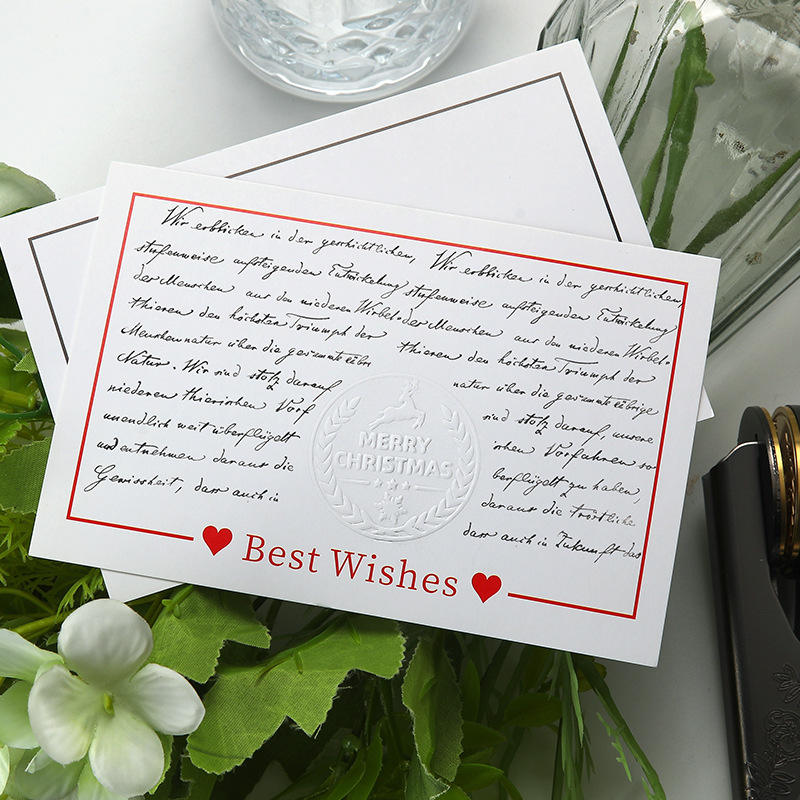 Wir erblicken in der geschichtlichen, Wir erblicken in der geschichtlichen,
stufenweise aufsteigenden Entwickelung stufenweise aufsteigenden Entwickelung
der Menschen aus den niederen Wirbel- der Menschen aus den niederen Wirbel-
thieren den höchsten Triumph der thieren den höchsten Triumph der
Menschennatur über die gesammte übri natur über die gesammte übrige
Natur. Wir sind stolz darauf sind stolz darauf, unsere
niederen thierischen Vorf ischen Vorfahren so
unendlich weit überflügelt berflügelt zu haben,
und entnehmen daraus die daraus die tröstliche
Gewissheit, dass auch in dass auch in Zukunft das
MERRY
CHRISTMAS
Best Wishes